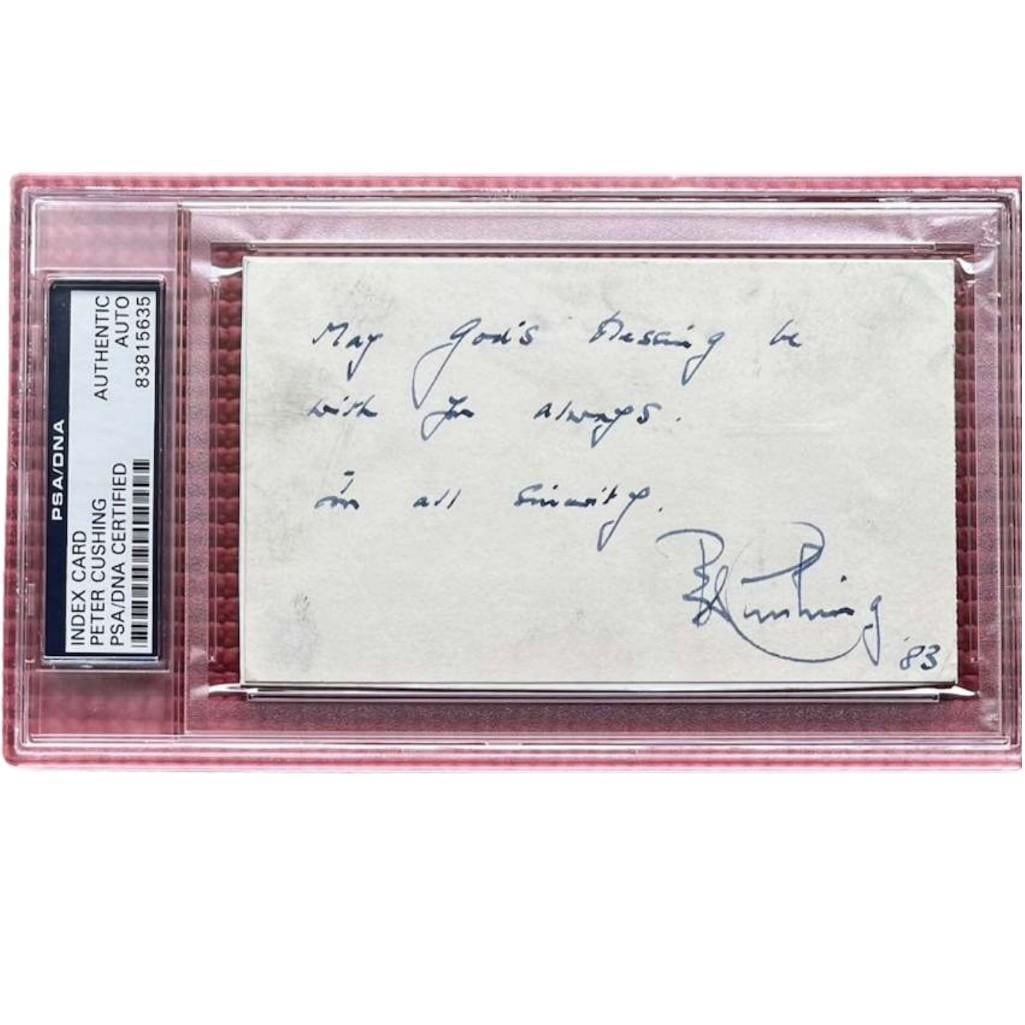 PSA/DNA
INDEX CARD
PETER CUSHING
PSA/DNA CERTIFIED
AUTHENTIC
AUTO
83815635
May God's Blessing be
with you always.
In all sincerity,
Peter Cushing
'83